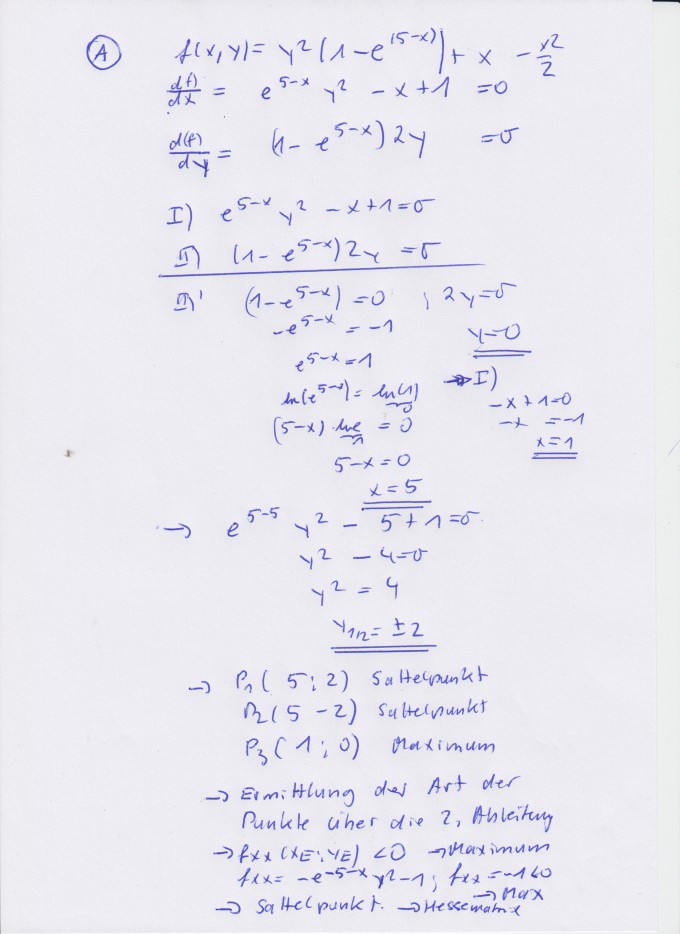 A f(x,y) = y²(1-e^(5-x)) + x - x²/2
d(f)/dx = e^5-x y² - x+1 = 0
d(f)/dy = (1- e^5-x) 2y = 0
I) e^5-x y² - x+1=0
II) (1- e^5-x) 2y = 0
II' (1-e^5-x) = 0 ; 2y=0
-e^5-x = -1 y=0
e^5-x = 1 → I)
ln(e^5-x) = ln(1) 0 -x+1=0
(5-x) · lne 1 = 0 -x = -1
5-x=0 x=1
x=5
→ e^5-5 y² - 5+1=0
y² - 4=0
y² = 4
y1/2 = ±2
→ P1( 5; 2) Sattelpunkt
P2( 5 -2) Sattelpunkt
P3( 1; 0) Maximum
→ Ermittlung der Art der
Punkte über die 2. Ableitung
→ fxx (xE; yE) <0 → Maximum
fxx= -e^-5-x y²-1; fxx = -1<0
→ Max
→ Sattelpunkt. → Hessematrix